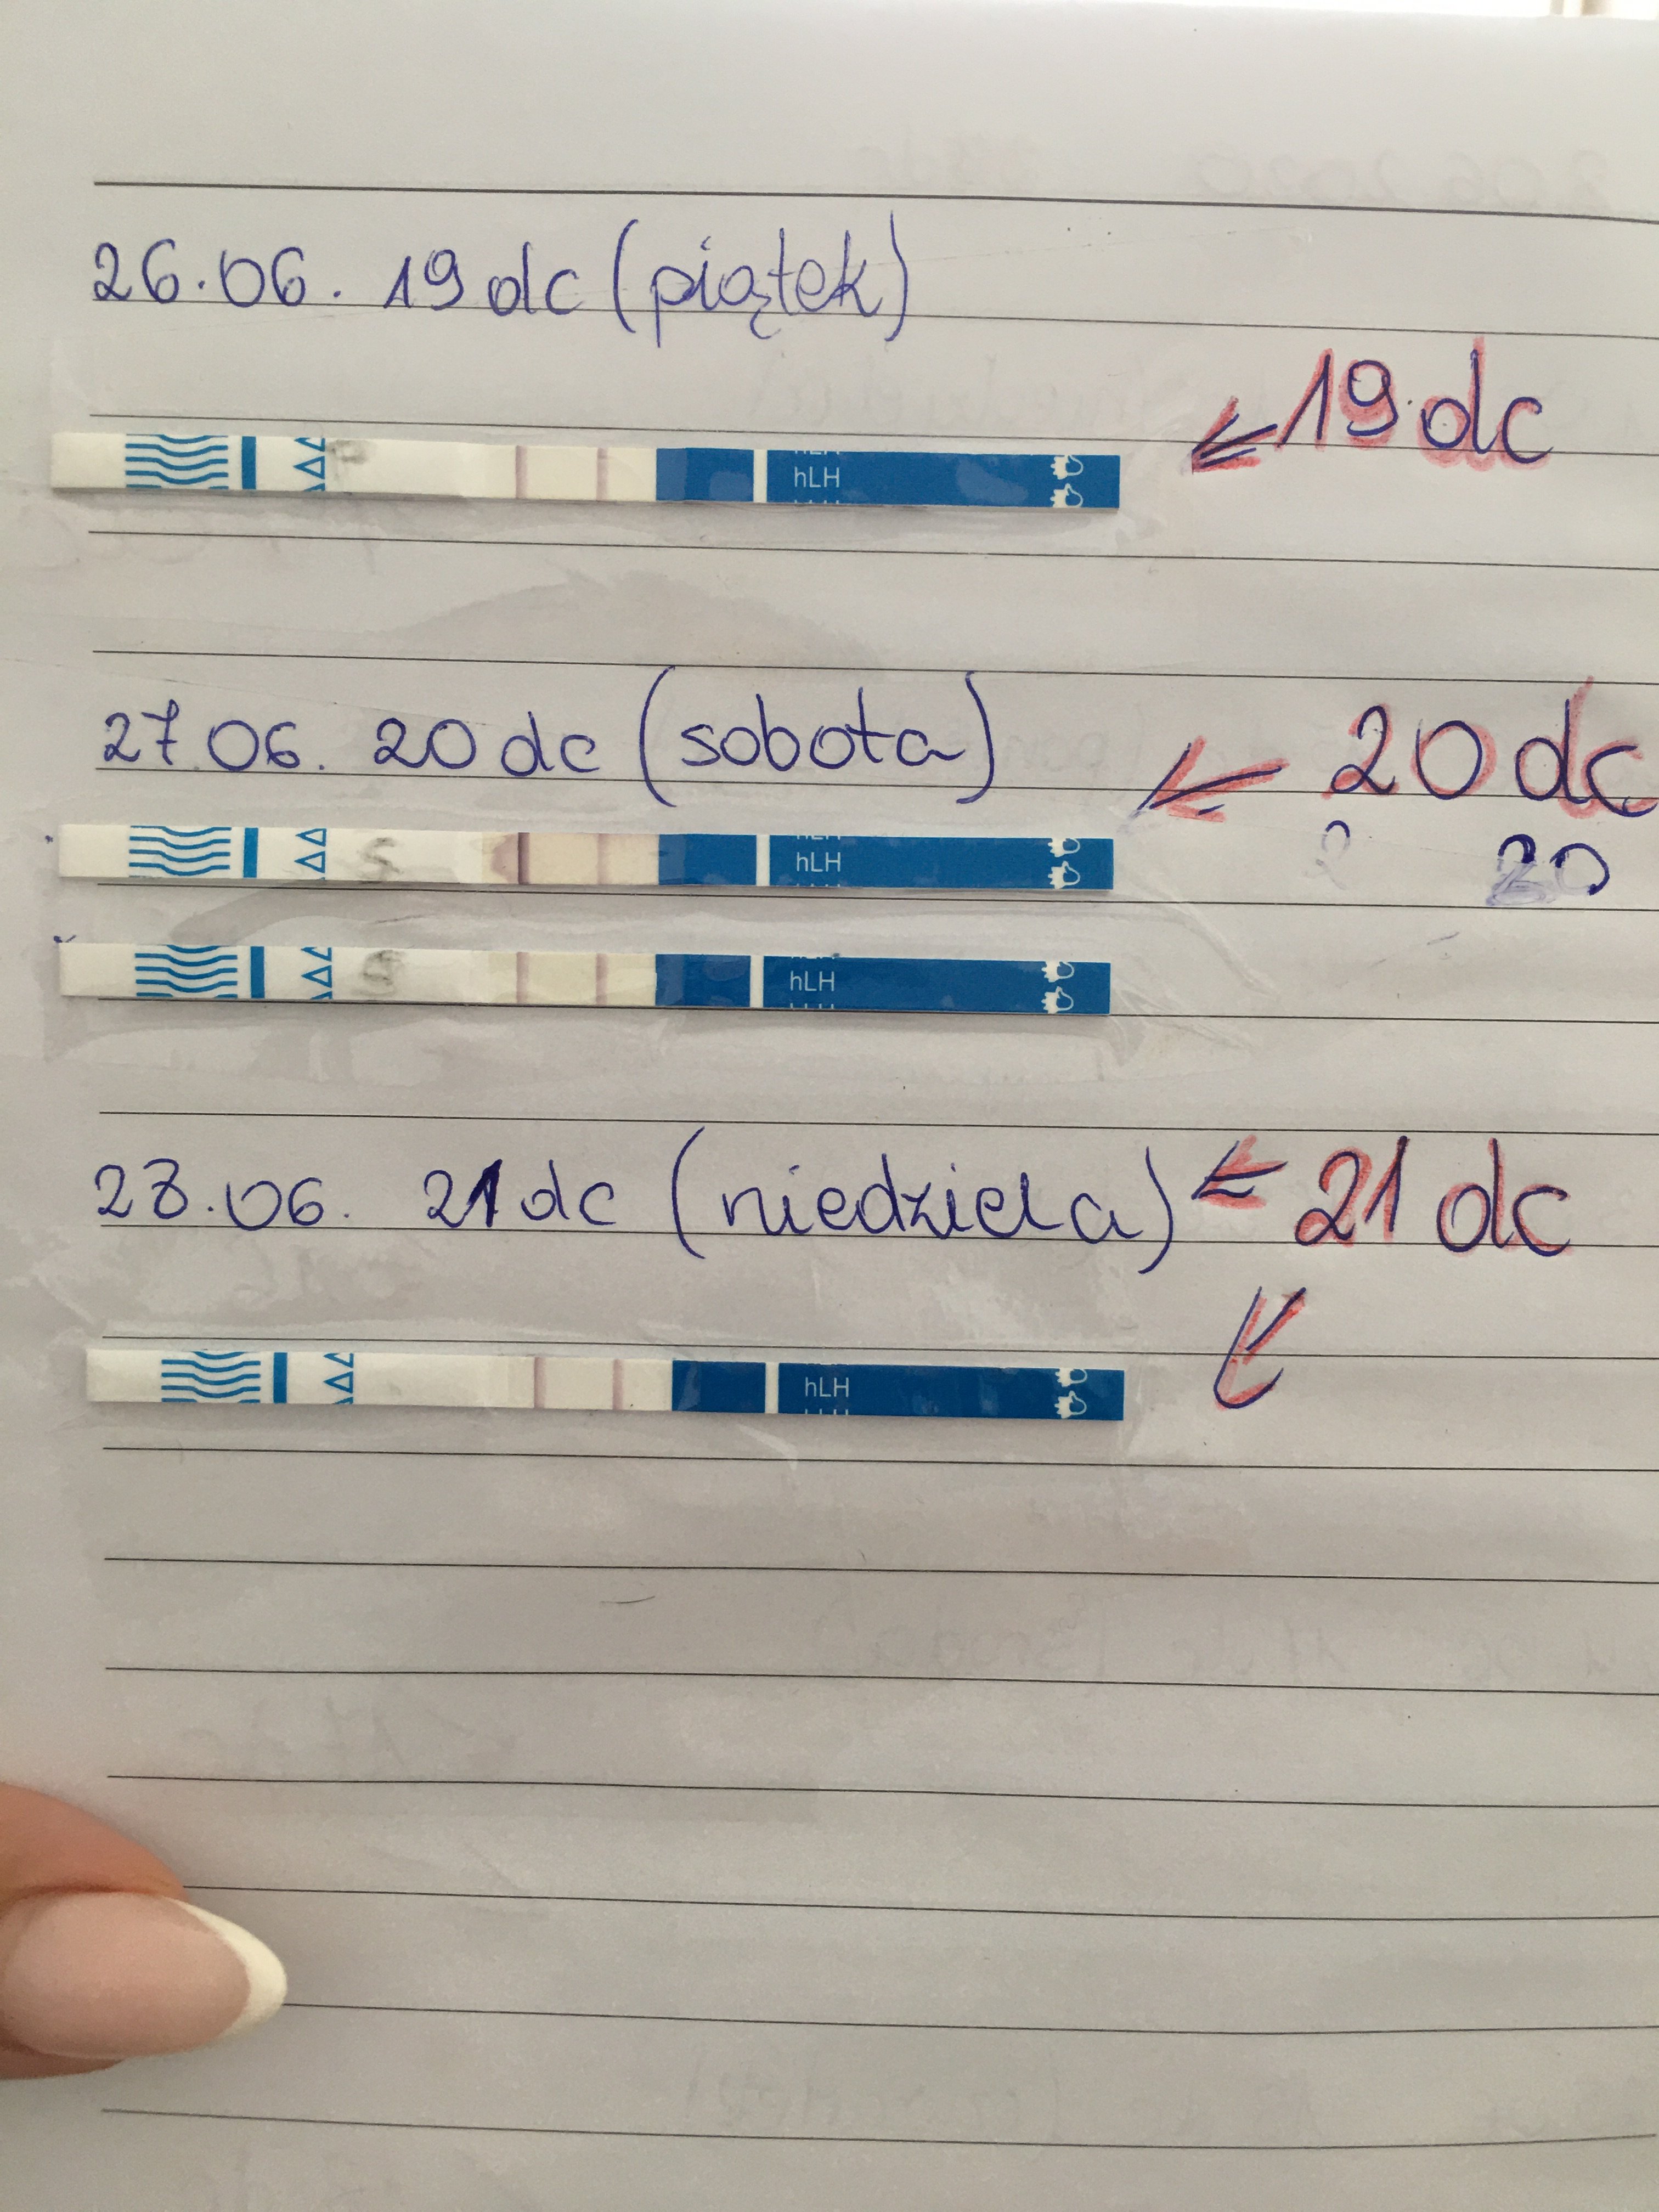 26.06. 19 dc (piątek)
19 dc
hLH
27.06. 20 dc (sobota)
20 dc
hLH
20
hLH
28.06. 21 dc (niedziela)
21 dc
hLH